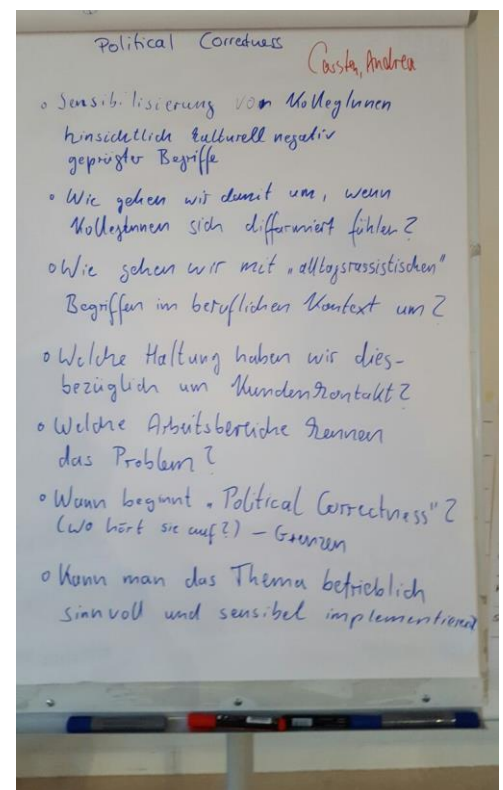 Political Correctness
Carsten, Andrea
Sensibilisierung von KollegInnen
hinsichtlich kulturell negativ
geprägter Begriffe
Wie gehen wir damit um, wenn
KollegInnen sich diffamiert fühlen?
Wie gehen wir mit „alltagsrassistischen"
Begriffen im beruflichen Kontext um?
Welche Haltung haben wir dies-
bezüglich um Kundenkontakt?
Welche Arbeitsbereiche kennen
das Problem?
Wann beginnt „Political Correctness"?
(Wo hört sie auf?) – Grenzen
Kann man das Thema betrieblich
sinnvoll und sensibel implementieren?